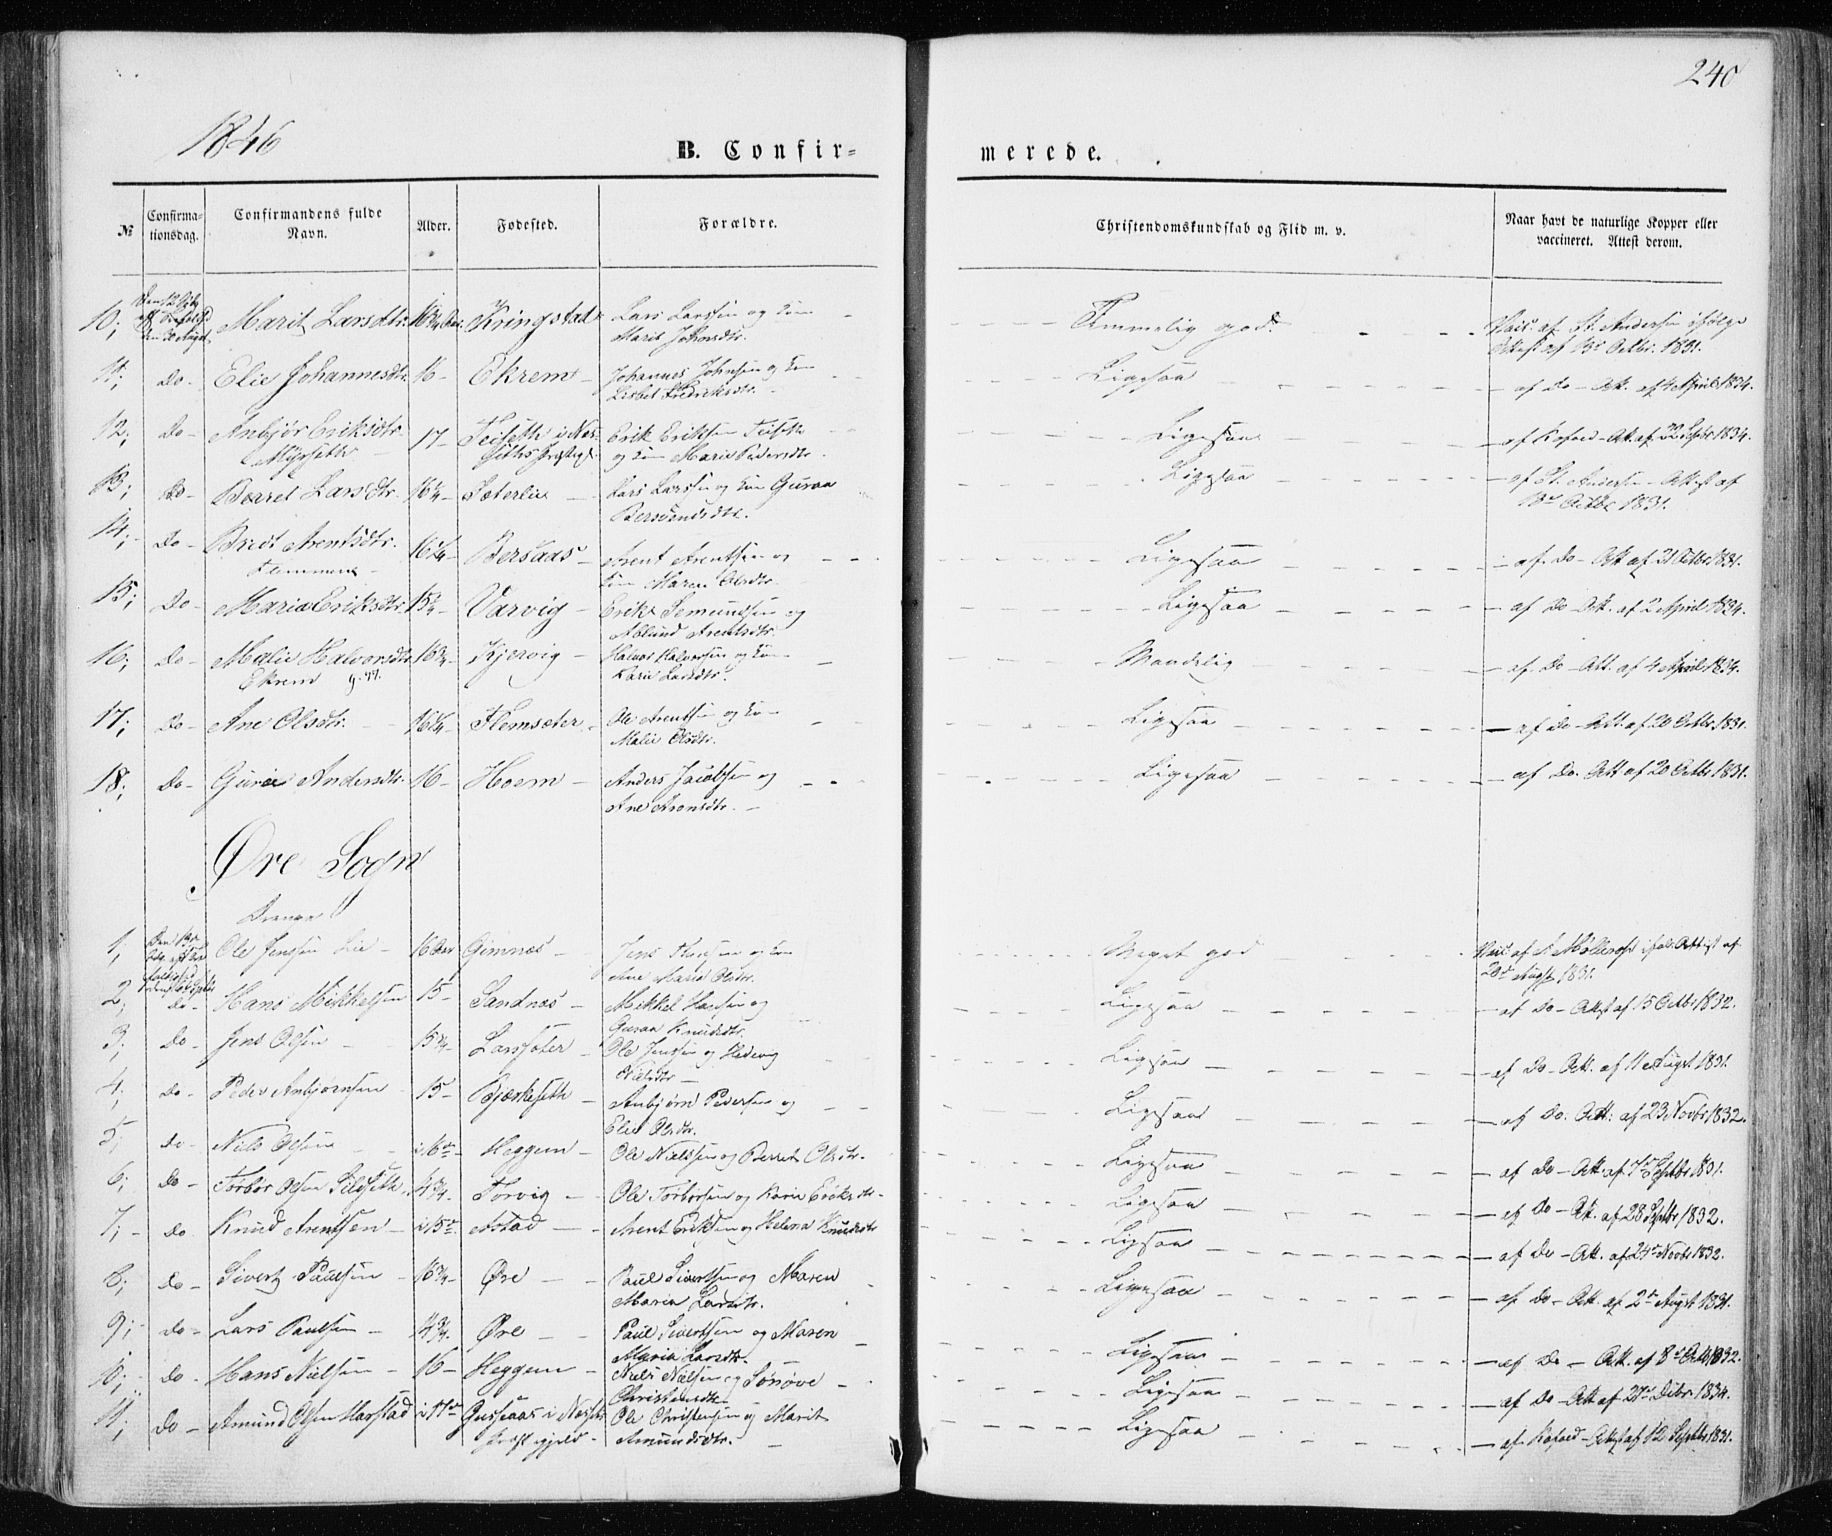 240
1846
B. Confir-
merede.
№
Confirma-
tionsdag.
Confirmandens fulde
Navn.
Alder.
Fødested.
Forældre.
Christendomskundskab og Flid m. v.
Naar havt de naturlige Kopper eller
vaccineret. Attest derom.
10; Marit Larsdtr. Kringstad Lars Larssen og
Marit Johnsdtr. Temmelig god. Vacc. af St. Andersen ifølge
Attest af 13de Octbr. 1831.
11; Do- Elie Johannesdtr. 16- Ekrem- Johannes Johnsen og
Lisbet Fredriksdtr. Ligesaa - af Do- Att. af 4 April 1834.
12; Do- Anbjør Eriksdtr. 17- Teiseth i Nes- Erik Eriksen Teiseth
og Marit Pedersdtr. Ligesaa - af Kofoed- Att. af 22 Septbr 1834.
13; Do- Beret Larsdtr. 16¼- Sæterlie - Lars Larssen og Guraa
Ligesaa - af St. Andersen - Attest af
13de Octbr 1831.
14; Do- Brit Arentsdtr. 16¼- Bersaas - Arent Arentsen og
Flemmene - Maren Olsdtr. Ligesaa - af Do- Att af 21 Octbr 1831.
15; Do- Maria Eriksdtr. 15¼- Varvig - Erik Semundsen og
Ablund Arentsdtr. Ligesaa - af Do- Att. af 2 April 1834.
16; Do- Malie Halvorsdtr. 16¾- Kjervig - Halvor Halvorsen og
Ekrem Karie Larsdtr. Maadelig - af Do- Att. af 4 April 1834.
17; Do- Ane Olsdtr. 16¼- Flemsæter - Ole Arentsen og
Malie Olsdtr. Ligesaa - af Do- Att. af 20 Octbr 1831.
18; Do- Gurie Andersdtr. 16- Hoem - Anders Jacobsen og
Ane Aronsdtr. - Ligesaa - af Do. Att af 20 Octbr 1831.
Øre Sogn
Drenge
1; Ole Jenssen Lie - 16 Aar Gimnæs - Jens
Ane Maria Olsdtr. Meget god Vacc. af F. Møllerop Attest af
20de August 1831.
2; Do Hans Mikkelsen 15- Sandnæs - Mikkel Hansen og
Guraa Knudsdtr. Ligesaa - af Do- Attest af 15 Octbr 1832.
3; Do- Jens Olsen 15¾- Larssæter - Ole Jenssen og Hedevig
Nielsdtr - Ligesaa - af Do- Att. af 11 August 1831.
4; Do- Peder Anbjørnsen 15- Bjerkeseth - Anbjørn Pedersen og
Elie Olsdtr. Ligesaa - af Do. Att: af 23 Novbr 1832.
5; Do- Niels Olsen i 16de Heggem - Ole Nielssen og Berret Olsdtr. Ligesaa - af Do- Att. af 7de Septbr 1831.
6; Do- Torbør Olsen 14¾. Torvig - Ole Torbørsen og Karie Eriksdtr- Ligesaa - af Do- Att. af 28 Septbr 1832.
7; - Do Knud Arentsen - i 15de Astad - Arent Eriksen og Helena Knudsdtr Ligesaa - af Do- Att. af 24de Novbr 1832.
8; Do- Sivert Paulsen - 16¾- Øre - Paul Sivertsen og Maren
Maria Larsdtr. Ligesaa - af Do- Att. af 2de August 1831.
9; - Do- Lars Paulsen - 14¾. Øre - Paul Sivertsen og Maren
Maria Larsdtr. Ligesaa - af Do- Att. af 8de Octbr 1832.
10; - Do- Hans Nielsen - 16- Heggem - Niels Nielsen og Sønøve
Christensdtr - Ligesaa - af Do- Att af 27de Decbr 1834.
11; Do- Amund Olsen Harstad i 17de Gussiaas i Nesset Ole Christensen og Marit
Præstegjeld - Amundsdtr. - Ligesaa - af Kofoed- Attest af 12 Septbr 1831.